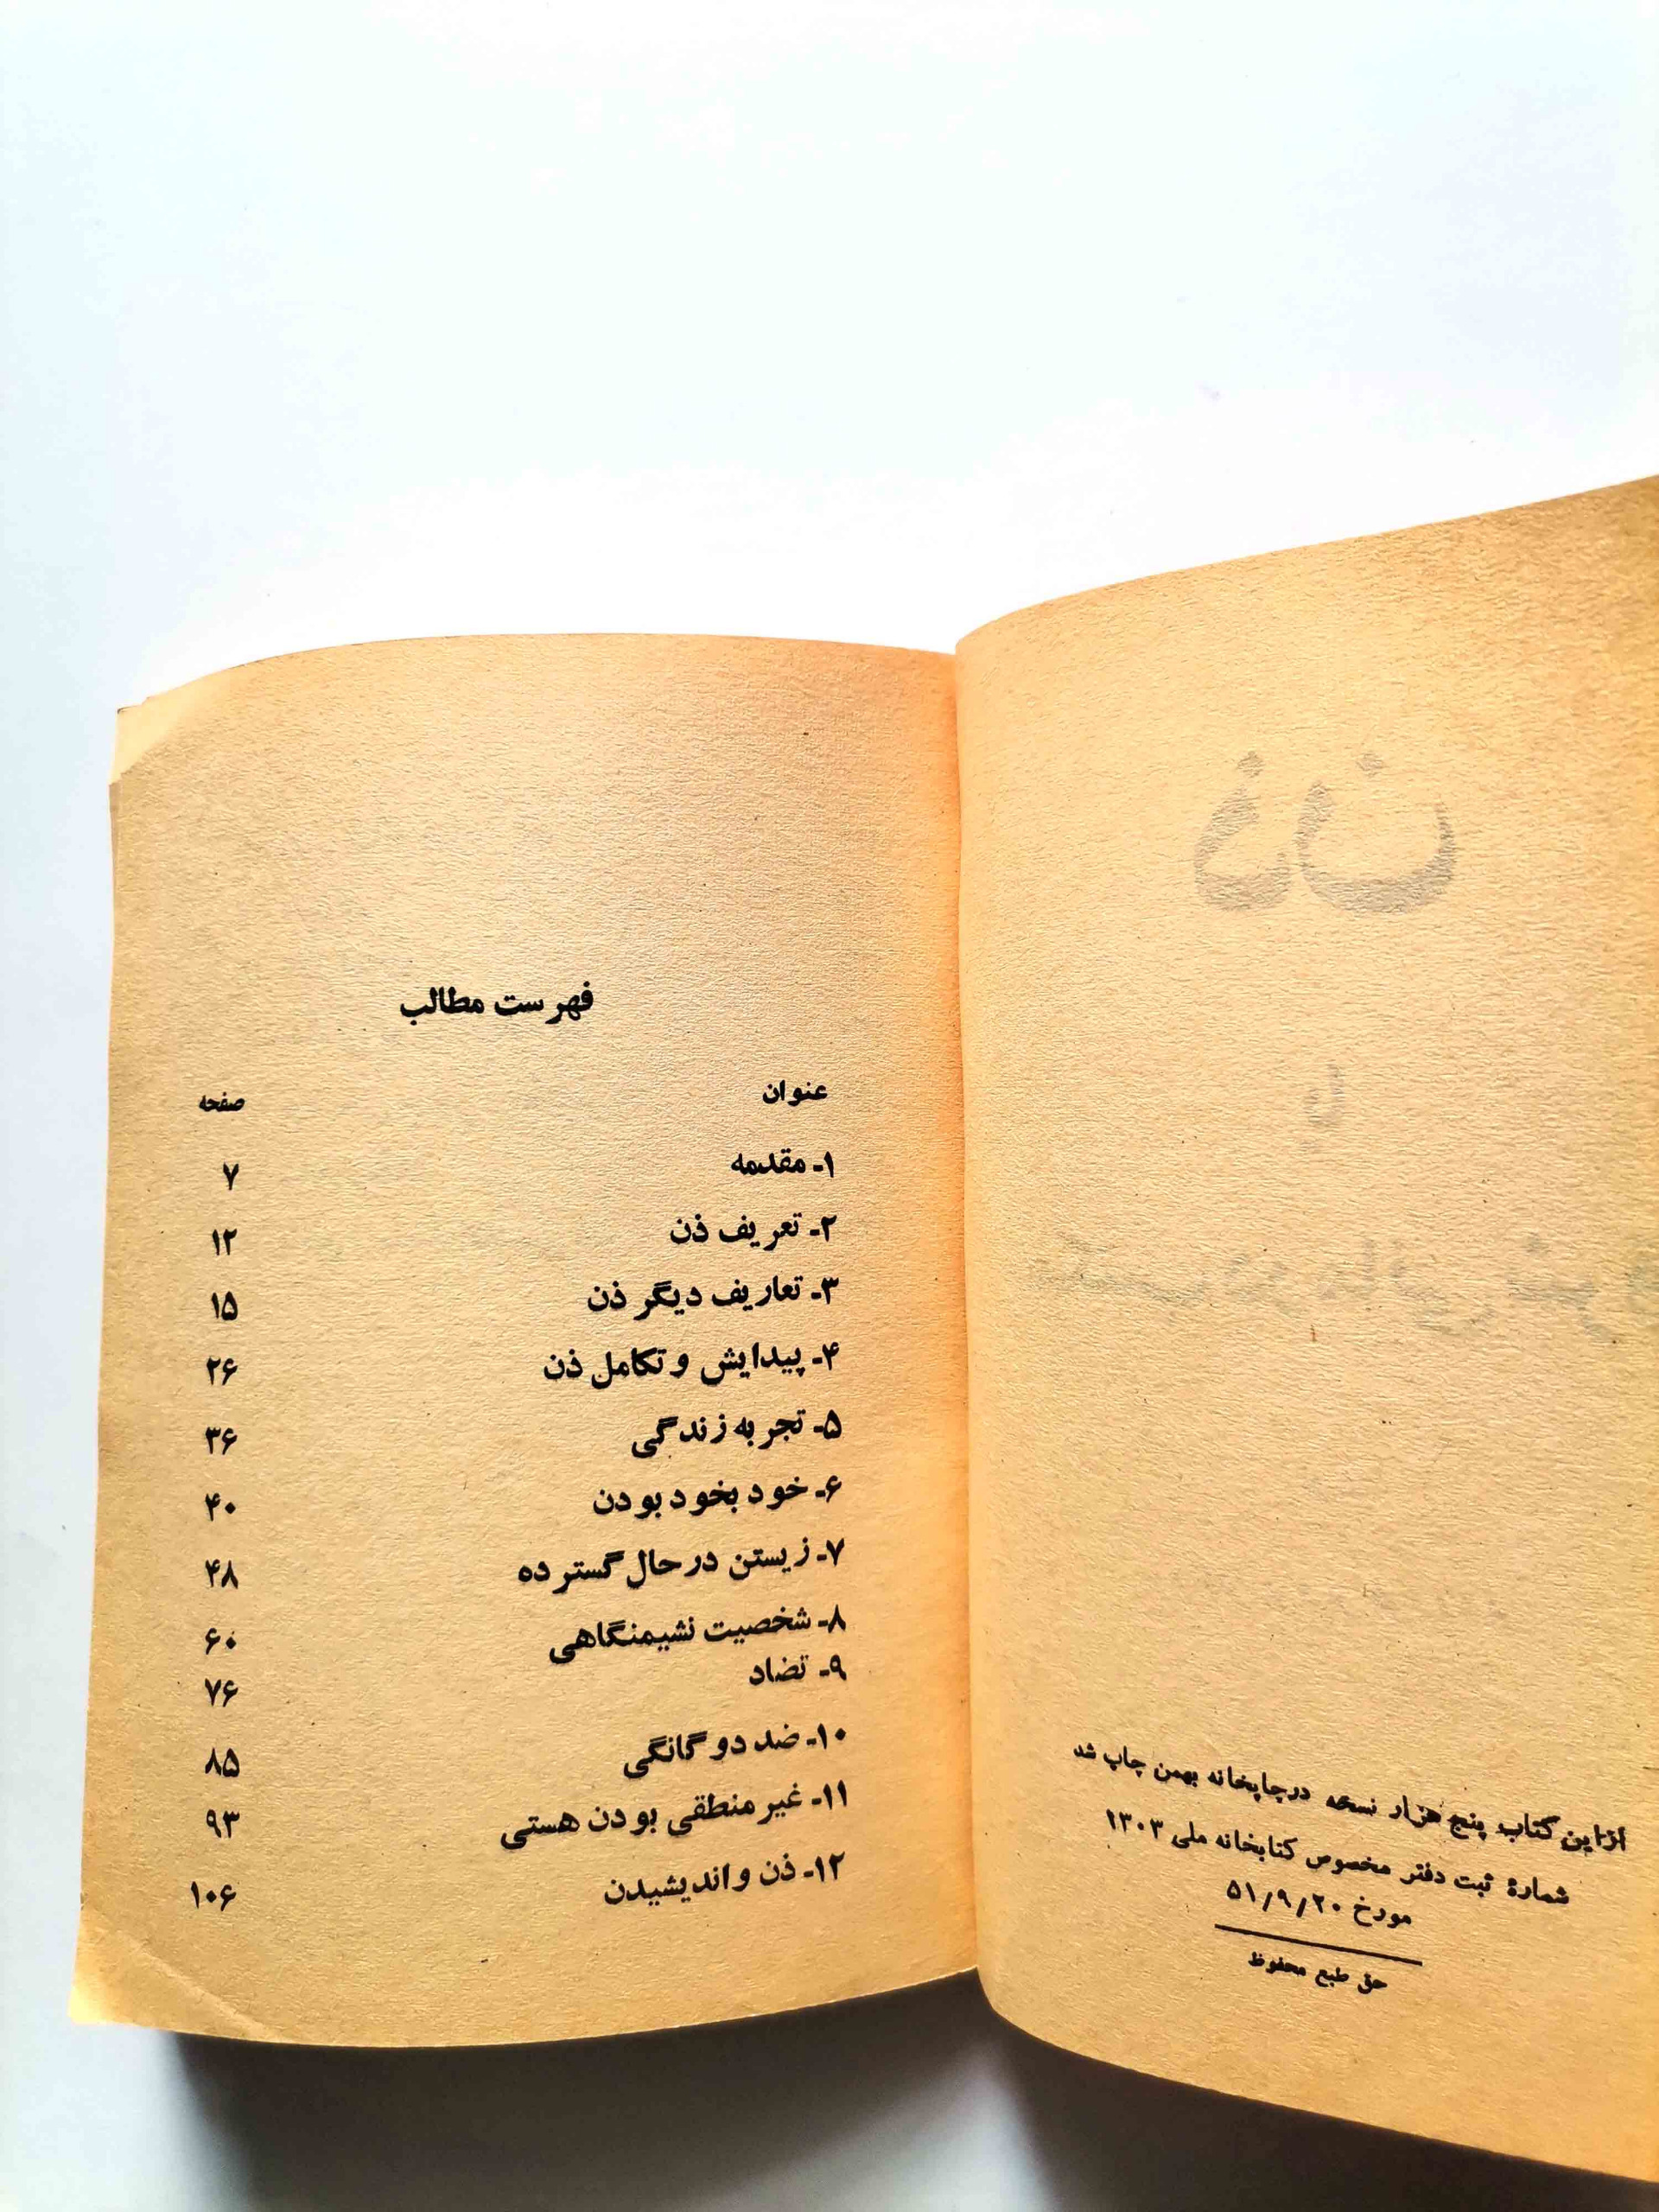 از این کتاب پنج هزار نسخه در چاپخانه بهمن چاپ شد
شمارهٔ ثبت دفتر مخصوص کتابخانه ملی ۱۳۰۳
مورخ ۵۱/۹/۲۰
حق طبع محفوظ
فهرست مطالب
عنوان صفحه
۱- مقدمه ۷
۲- تعریف ذن ۱۲
۳- تعاریف دیگر ذن ۱۵
۴- پیدایش و تکامل ذن ۲۶
۵- تجربه زندگی ۳۶
۶- خود بخود بودن ۴۰
۷- زیستن در حال گسترده ۴۸
۸- شخصیت نشیمنگاهی ۶۰
۹- تضاد ۷۶
۱۰- ضد دوگانگی ۸۵
۱۱- غیر منطقی بودن هستی ۹۳
۱۲- ذن و اندیشیدن ۱۰۶